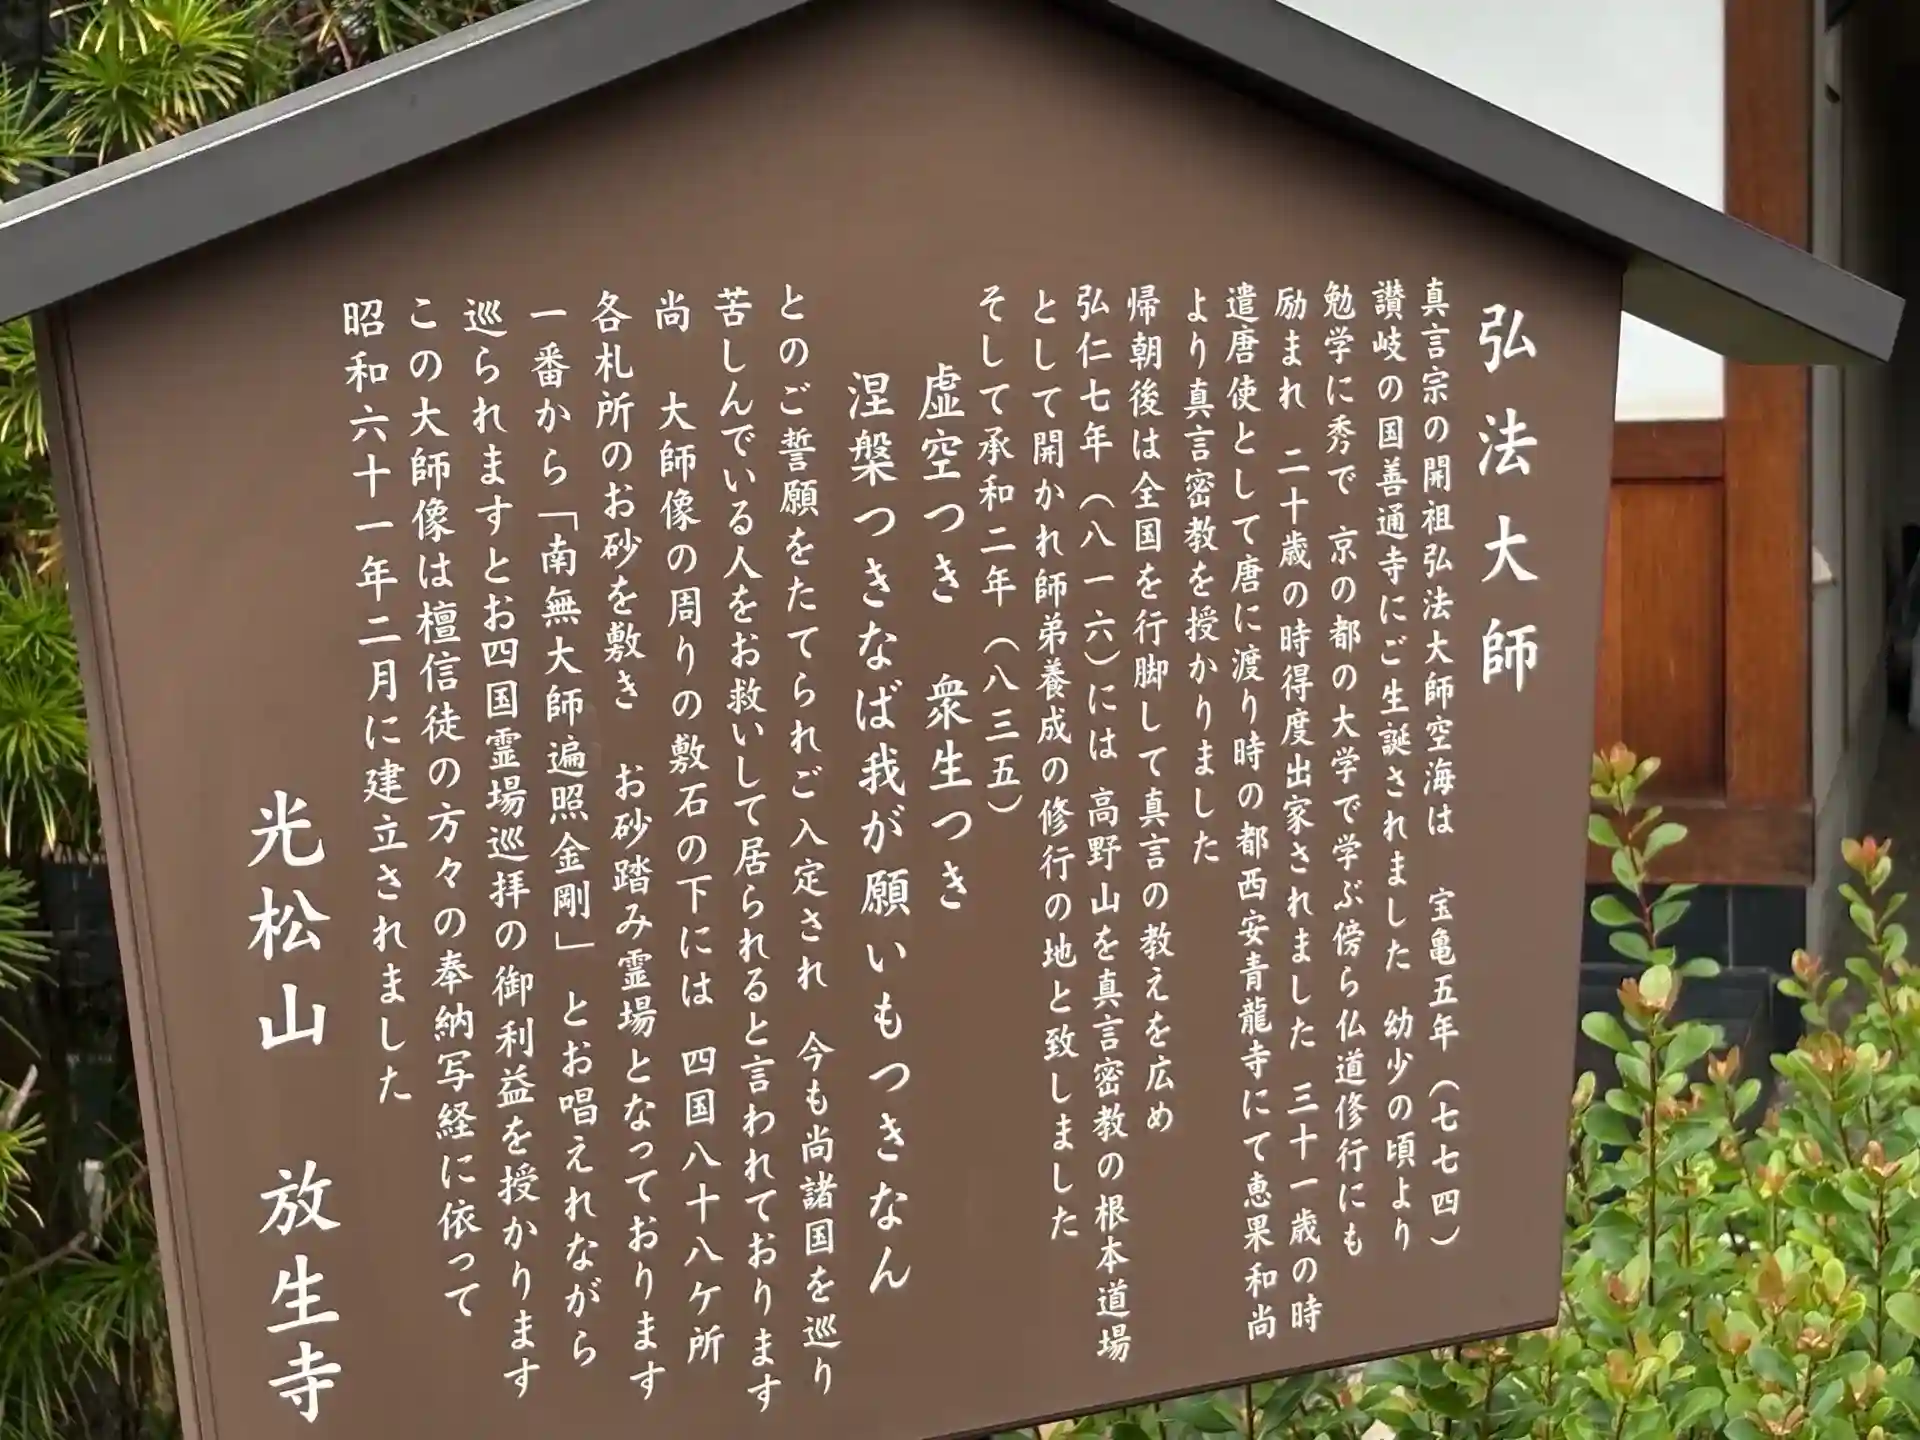 弘法大師
真言宗の開祖弘法大師空海は 宝亀五年(七七四)
讃岐の国善通寺にご生誕されました 幼少の頃より
勉学に秀で 京の都の大学で学ぶ傍ら仏道修行にも
励まれ 二十歳の時得度出家されました 三十一歳の時
遣唐使として唐に渡り時の都西安青龍寺にて恵果和尚
より真言密教を授かりました
帰朝後は全国を行脚して真言の教えを広め
弘仁七年(八一六)には 高野山を真言密教の根本道場
として開かれ師弟養成の修行の地と致しました
そして承和二年(八三五)
虚空つき 衆生つき
涅槃つきなば我が願いもつきなん
とのご誓願をたてられご入定され 今も尚諸国を巡り
苦しんでいる人をお救いして居られると言われております
尚 大師像の周りの敷石の下には 四国八十八ケ所
各札所のお砂を敷き お砂踏み霊場となっております
一番から「南無大師遍照金剛」とお唱えれながら
巡られますとお四国霊場巡拝の御利益を授かります
この大師像は檀信徒の方々の奉納写経に依って
昭和六十一年二月に建立されました
光松山 放生寺